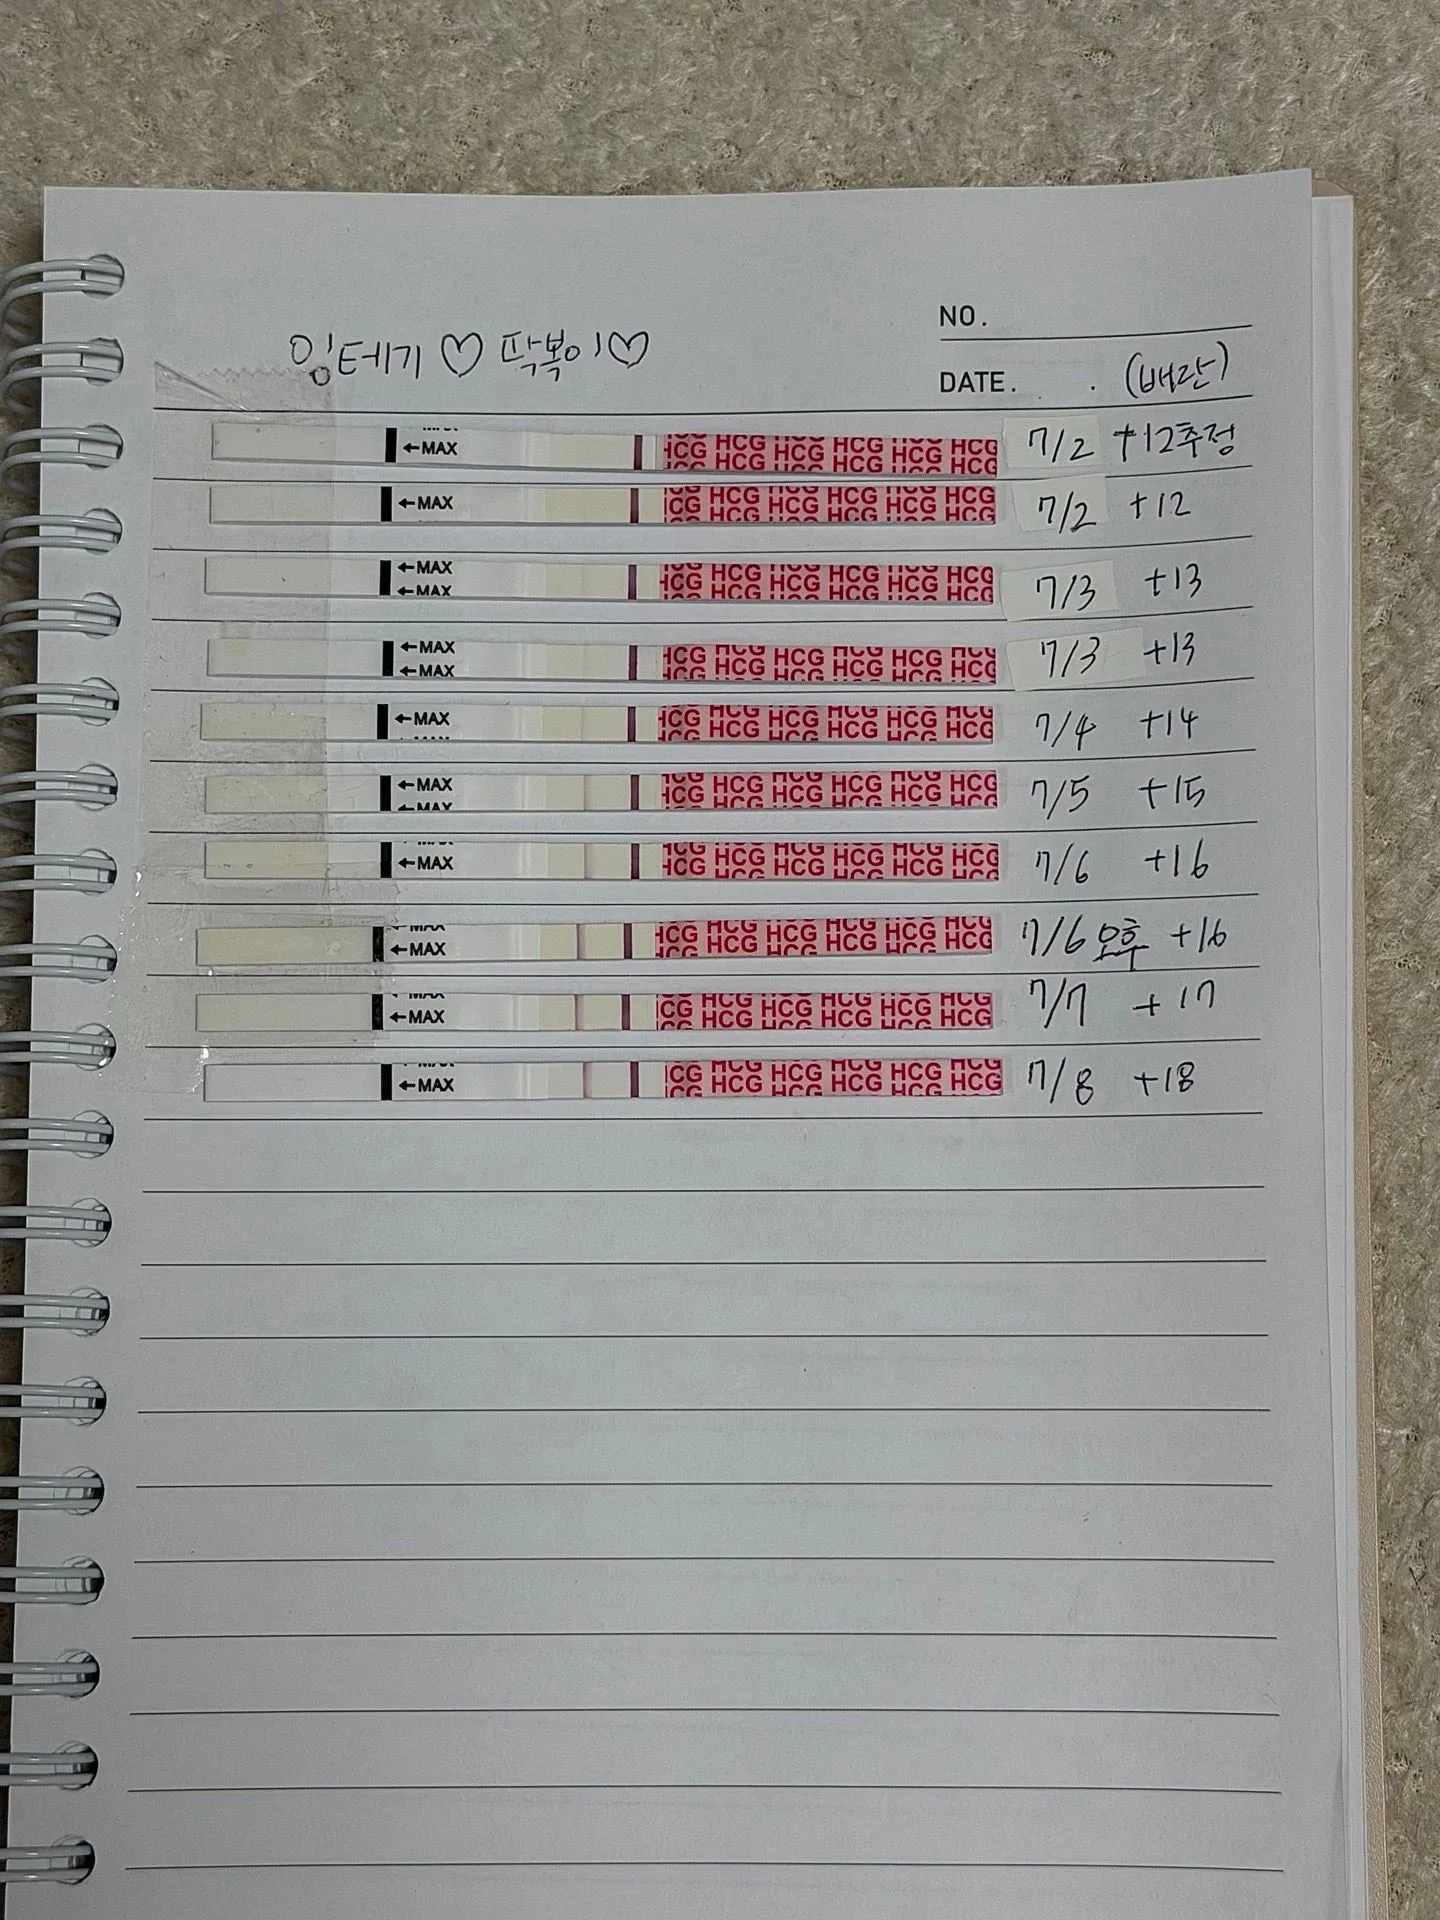 NO.
임테기 ♡ 팍복이♡
DATE. . (배란)
←MAX HCG HCG HCG HCG HCG HCG 7/2 +12추정
←MAX HCG HCG HCG HCG HCG HCG 7/2 +12
←MAX ←MAX HCG HCG HCG HCG HCG HCG 7/3 +13
←MAX ←MAX HCG HCG HCG HCG HCG HCG 7/3 +13
←MAX HCG HCG HCG HCG HCG HCG 7/4 +14
←MAX ←MAX HCG HCG HCG HCG HCG HCG 7/5 +15
←MAX HCG HCG HCG HCG HCG HCG 7/6 +16
←MAX HCG HCG HCG HCG HCG HCG 7/6 오후 +16
←MAX HCG HCG HCG HCG HCG HCG 7/7 +17
←MAX HCG HCG HCG HCG HCG HCG 7/8 +18